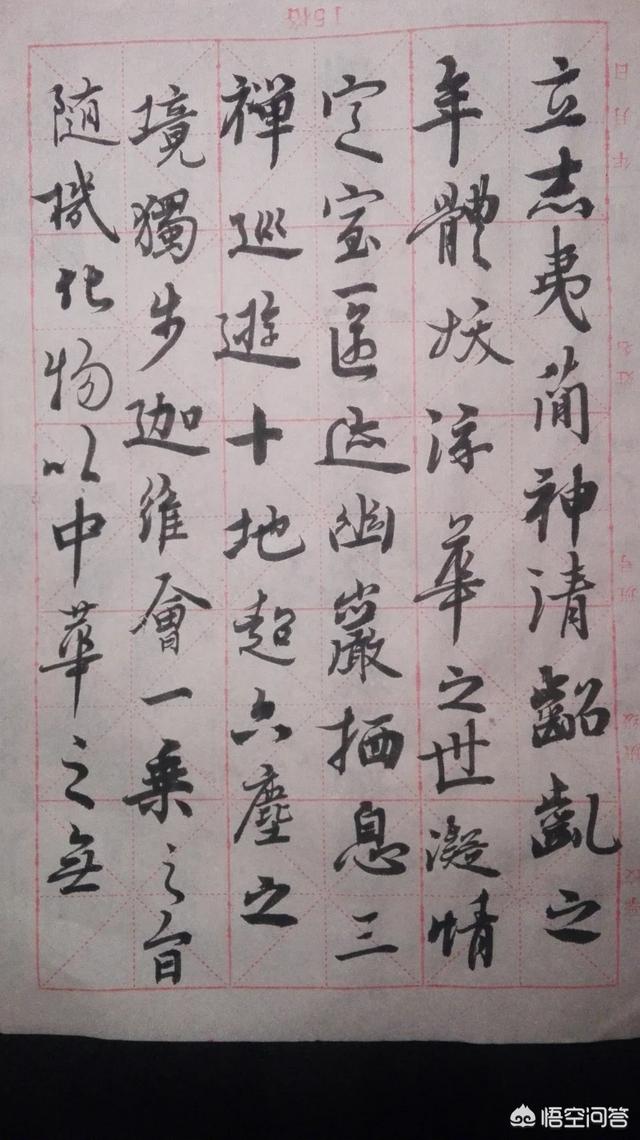 立志夷簡神清齠齔之
年體拔浮華之世凝情
定室匿迹幽巖栖息三
禪巡遊十地超六塵之
境獨步迦維會一乘之旨
随機化物以中華之無
悟空问答